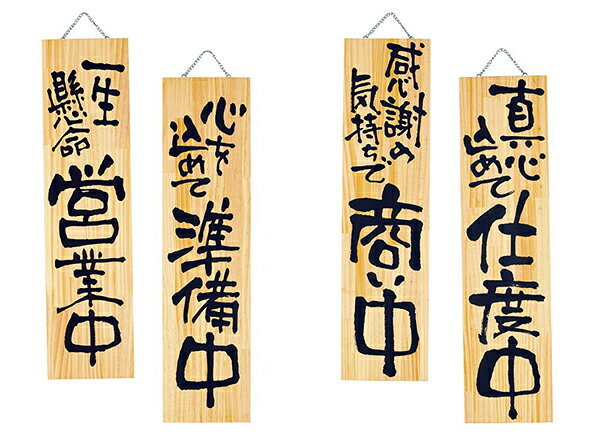 一生
懸命
営業中
心を
込めて
準備中
感謝の
気持ちで
商い中
真心
込めて
仕度中